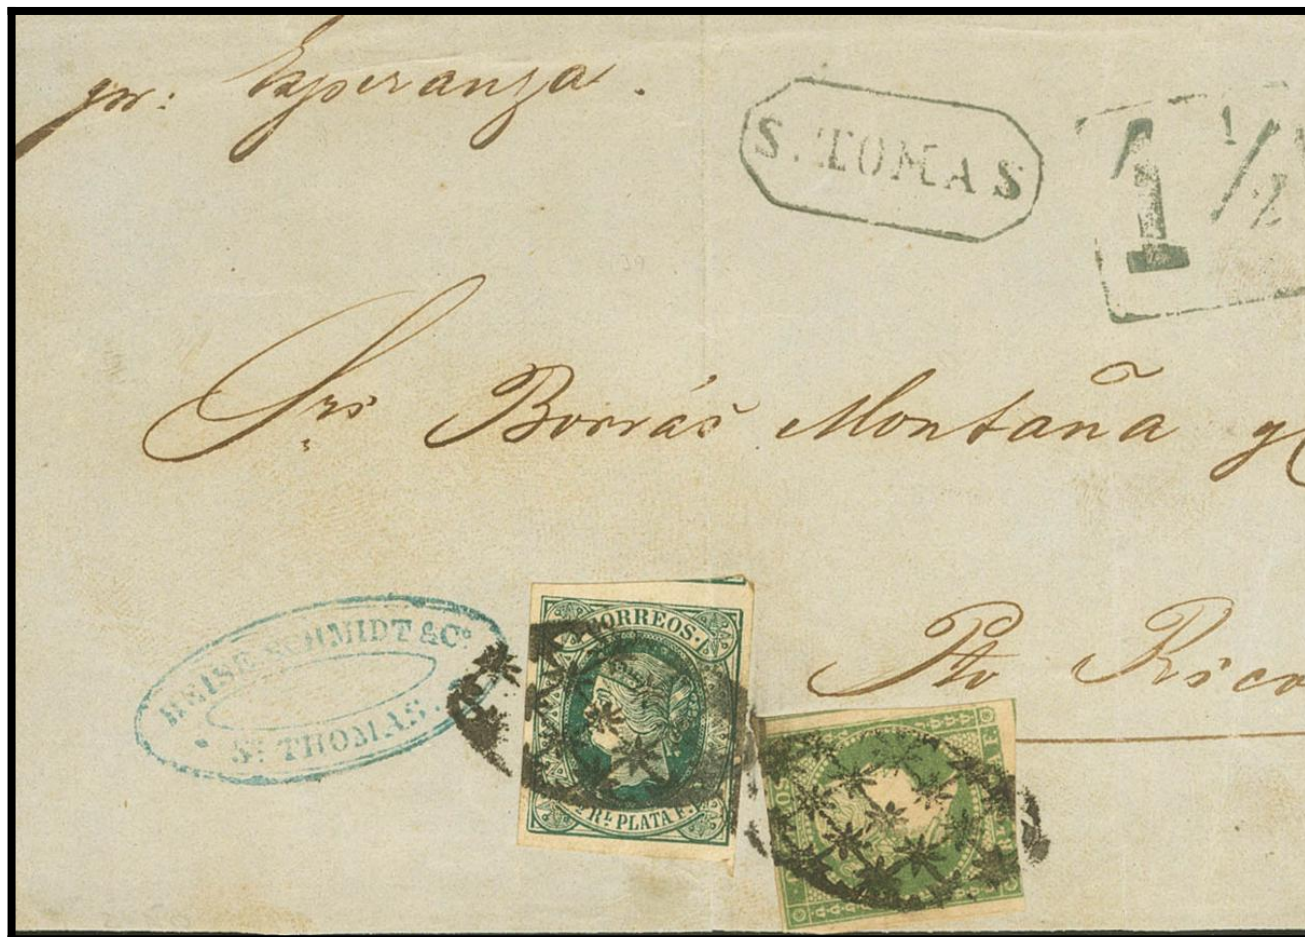 pr: Esperanza.
S. TOMAS
1 1/2
Srs Borrás Montaña y C
Pto Rico
HEISE SCHMIDT & Co.
St. THOMAS.
CORREOS.
Rl. PLATA F.